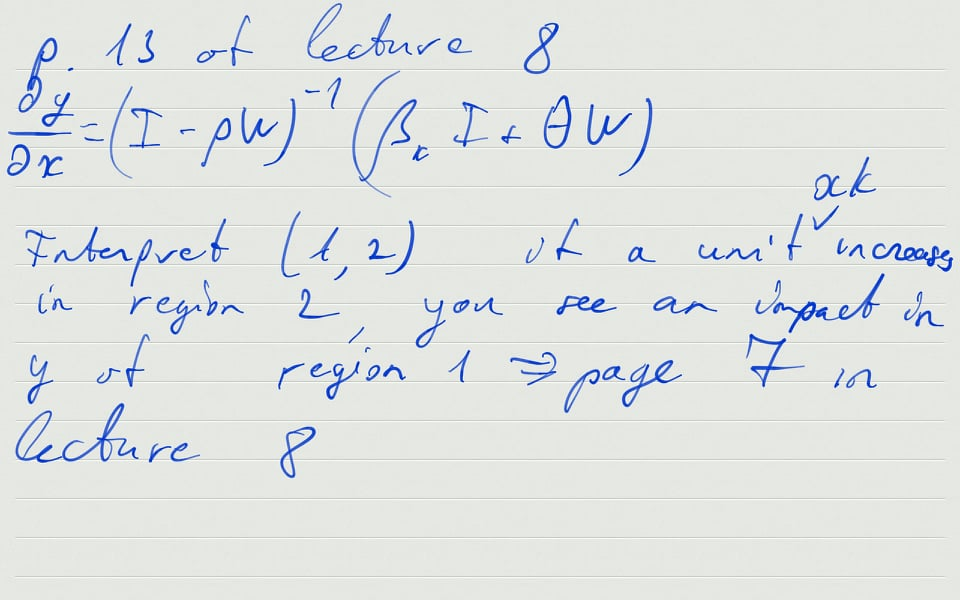 p. 13 of lecture 8
∂y/∂x = (I - ρW)⁻¹ (βₖ I + θW)
xk
Interpret (1,2) if a unit ✓ increases
in region 2, you see an impact in
y of region 1 ⇒ page 7 in
lecture 8